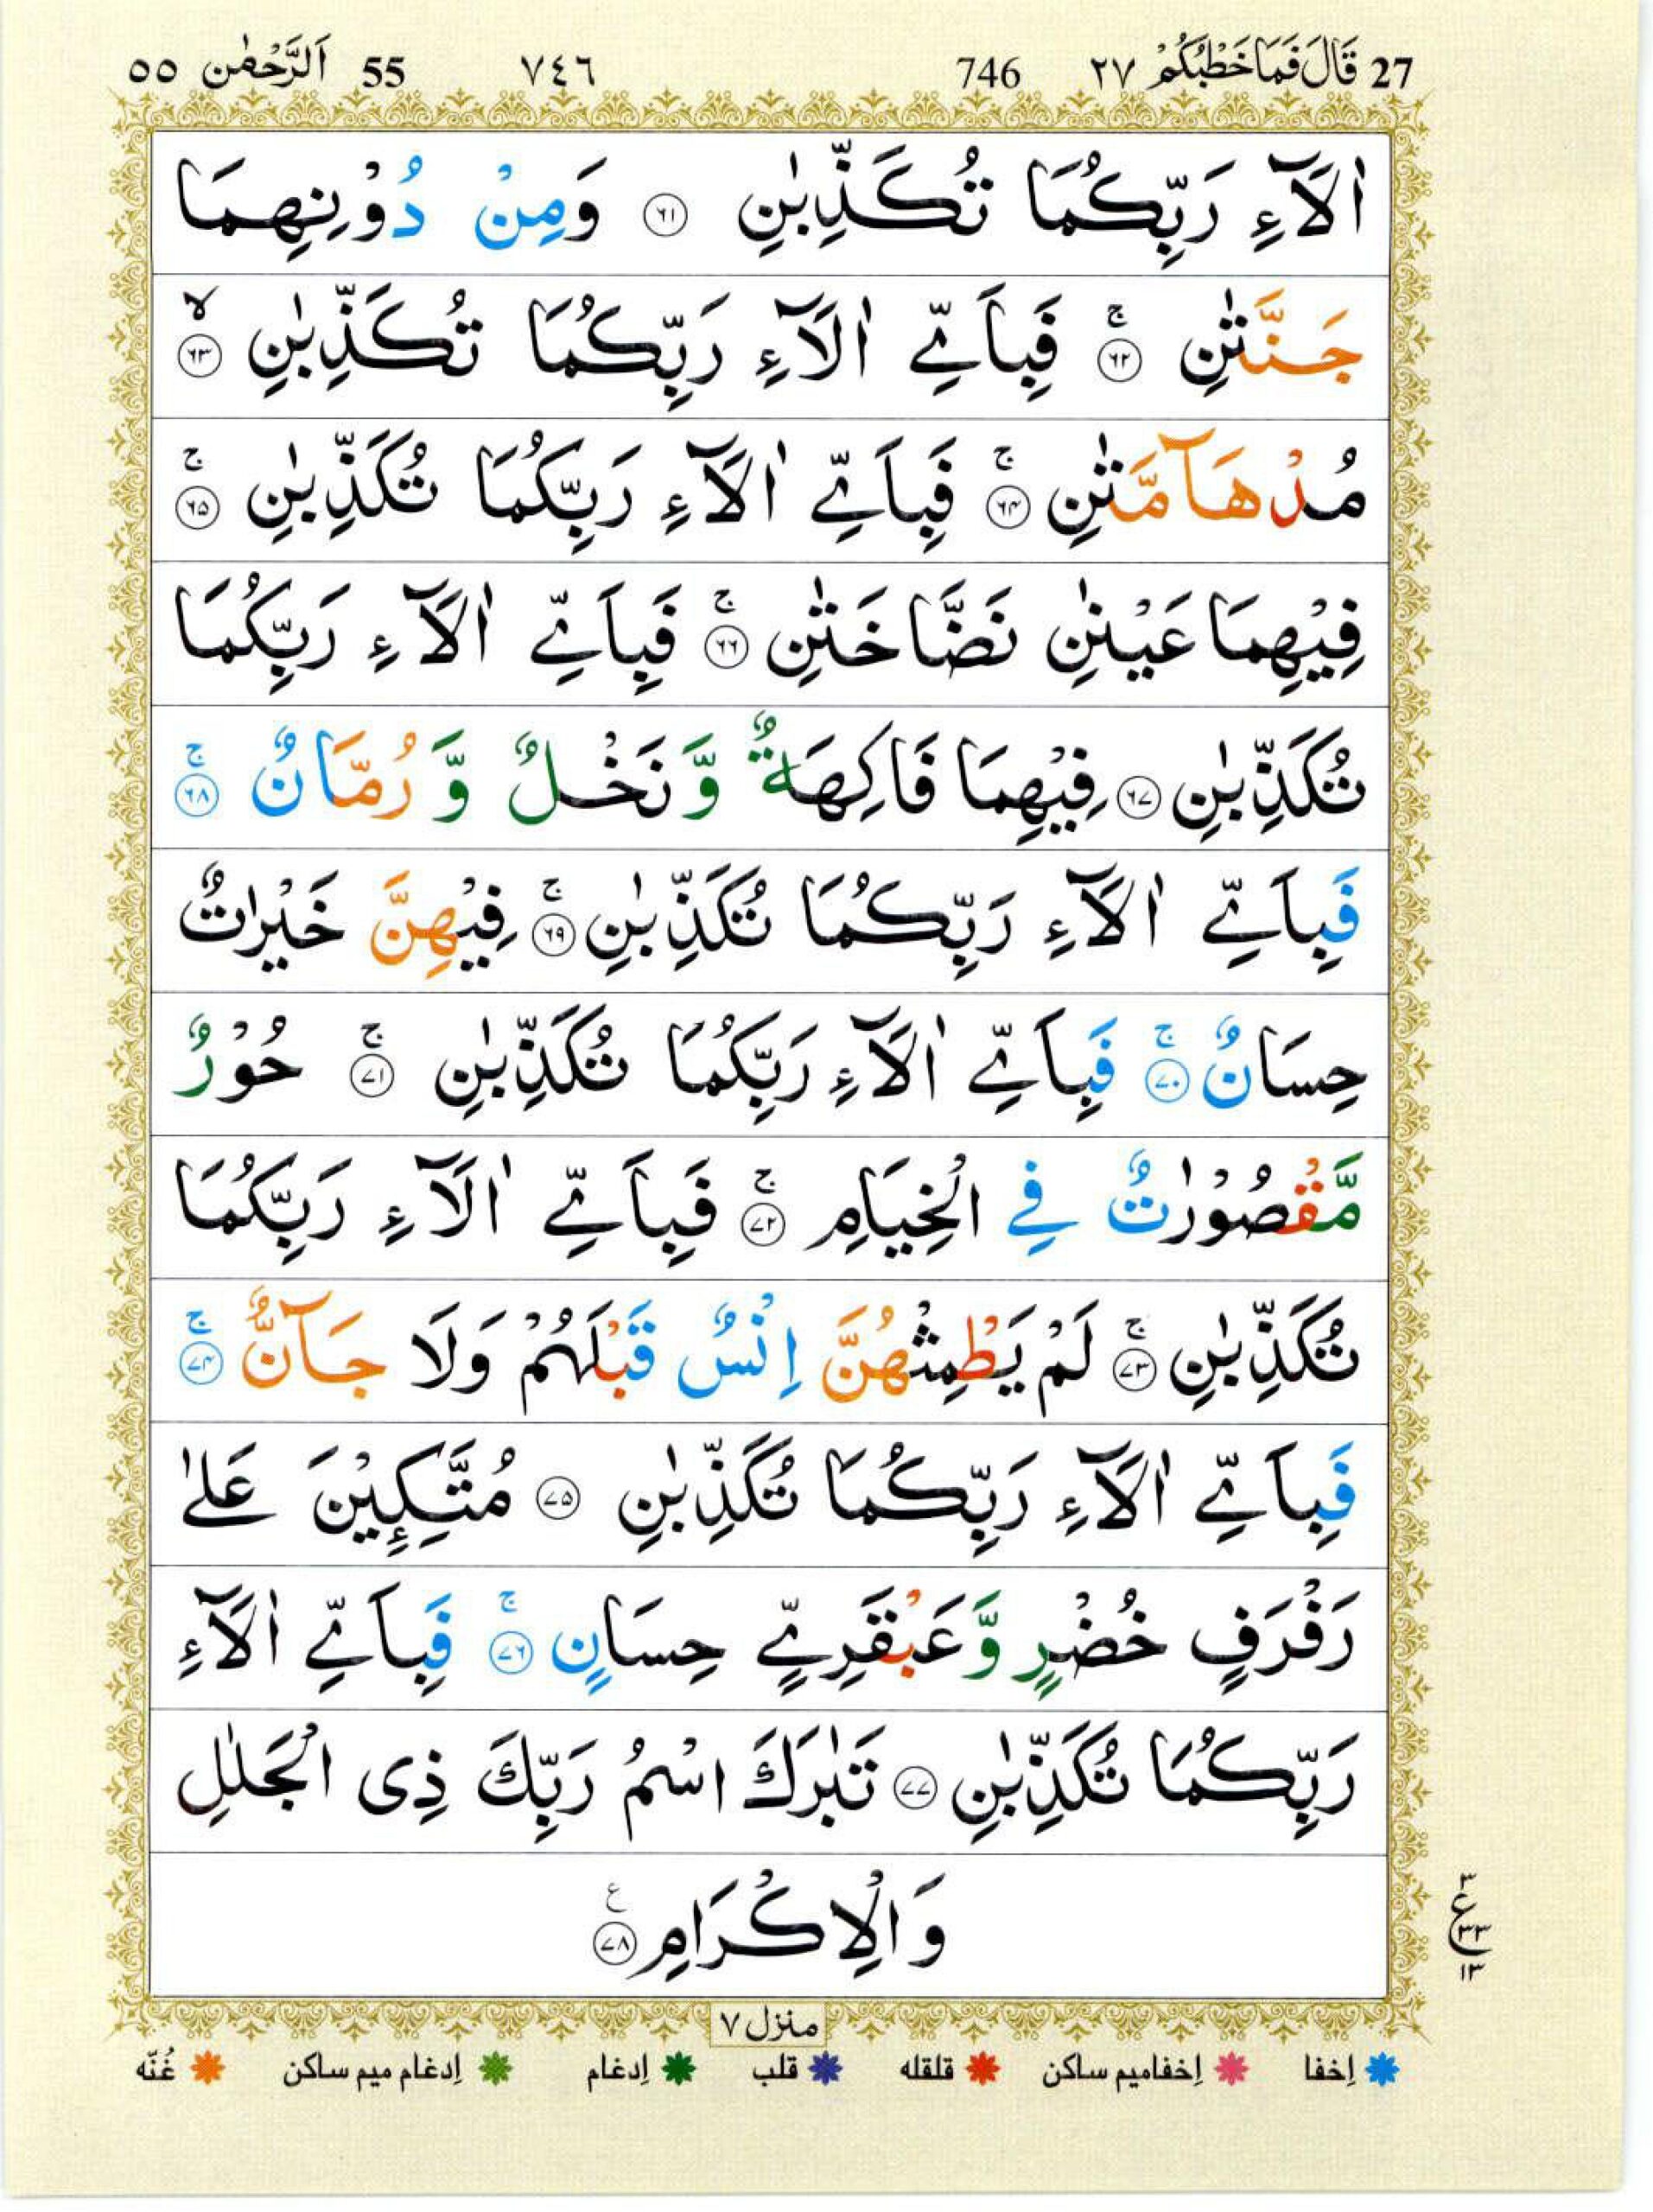 27 قَالَ فَمَا خَطْبُكُمْ ٢٧ 746 ٧٤٦ 55 اَلرَّحْمٰن ٥٥
اٰلَآءِ رَبِّكُمَا تُكَذِّبٰنِ ﴿۶۱﴾ وَمِنْ دُوْنِهِمَا
جَنَّتٰنِ ۚ﴿۶۲﴾ فَبِاَيِّ اٰلَآءِ رَبِّكُمَا تُكَذِّبٰنِ ۙ﴿۶۳﴾
مُدْهَآمَّتٰنِ ۚ﴿۶۴﴾ فَبِاَيِّ اٰلَآءِ رَبِّكُمَا تُكَذِّبٰنِ ۚ﴿۶۵﴾
فِيْهِمَا عَيْنٰنِ نَضَّاخَتٰنِ ۚ﴿۶۶﴾ فَبِاَيِّ اٰلَآءِ رَبِّكُمَا
تُكَذِّبٰنِ ﴿۶۷﴾ فِيْهِمَا فَاكِهَةٌ وَّنَخْلٌ وَّرُمَّانٌ ۚ﴿۶۸﴾
فَبِاَيِّ اٰلَآءِ رَبِّكُمَا تُكَذِّبٰنِ ۚ﴿۶۹﴾ فِيْهِنَّ خَيْرٰتٌ
حِسَانٌ ۚ﴿۷۰﴾ فَبِاَيِّ اٰلَآءِ رَبِّكُمَا تُكَذِّبٰنِ ۚ﴿۷۱﴾ حُوْرٌ
مَّقْصُوْرٰتٌ فِي الْخِيَامِ ۚ﴿۷۲﴾ فَبِاَيِّ اٰلَآءِ رَبِّكُمَا
تُكَذِّبٰنِ ۚ﴿۷۳﴾ لَمْ يَطْمِثْهُنَّ اِنْسٌ قَبْلَهُمْ وَلَا جَآنٌّ ۚ﴿۷۴﴾
فَبِاَيِّ اٰلَآءِ رَبِّكُمَا تُكَذِّبٰنِ ﴿۷۵﴾ مُتَّكِـِٕيْنَ عَلٰى
رَفْرَفٍ خُضْرٍ وَّعَبْقَرِيٍّ حِسَانٍ ۚ﴿۷۶﴾ فَبِاَيِّ اٰلَآءِ
رَبِّكُمَا تُكَذِّبٰنِ ﴿۷۷﴾ تَبٰرَكَ اسْمُ رَبِّكَ ذِى الْجَلٰلِ
وَالْاِكْرَامِ ﴿۷۸﴾ ع
۳ ع ۳۳ ۱۳
منزل ۷
اِخفا اِخفا میم ساکن قلقله قلب اِدغام اِدغام میم ساکن غُنّه